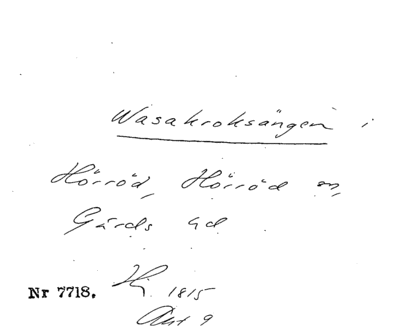 Wasakroksängen i
Hörröd, Hörröd sn,
Gärds hd
Nr 7718. Hj. 1815
Akt 9